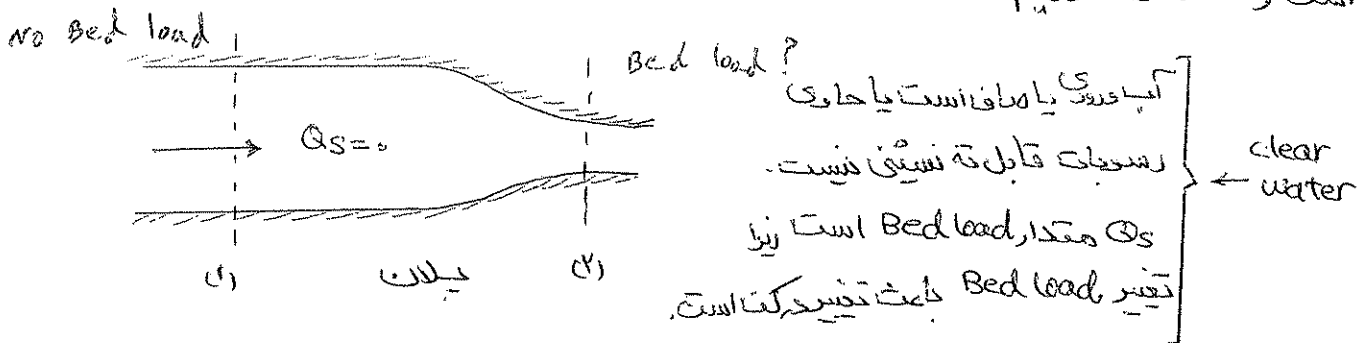 است و
No Bed load
Bed load ?
Qs=0
(۱)
پلان
(۲)
آب ورودی یا صاف است یا حاوی
رسوبات قابل ته نشینی نیست.
Qs مقدار Bed load است زیرا
تغییر Bed load باعث تغییر در کف است.
clear
water